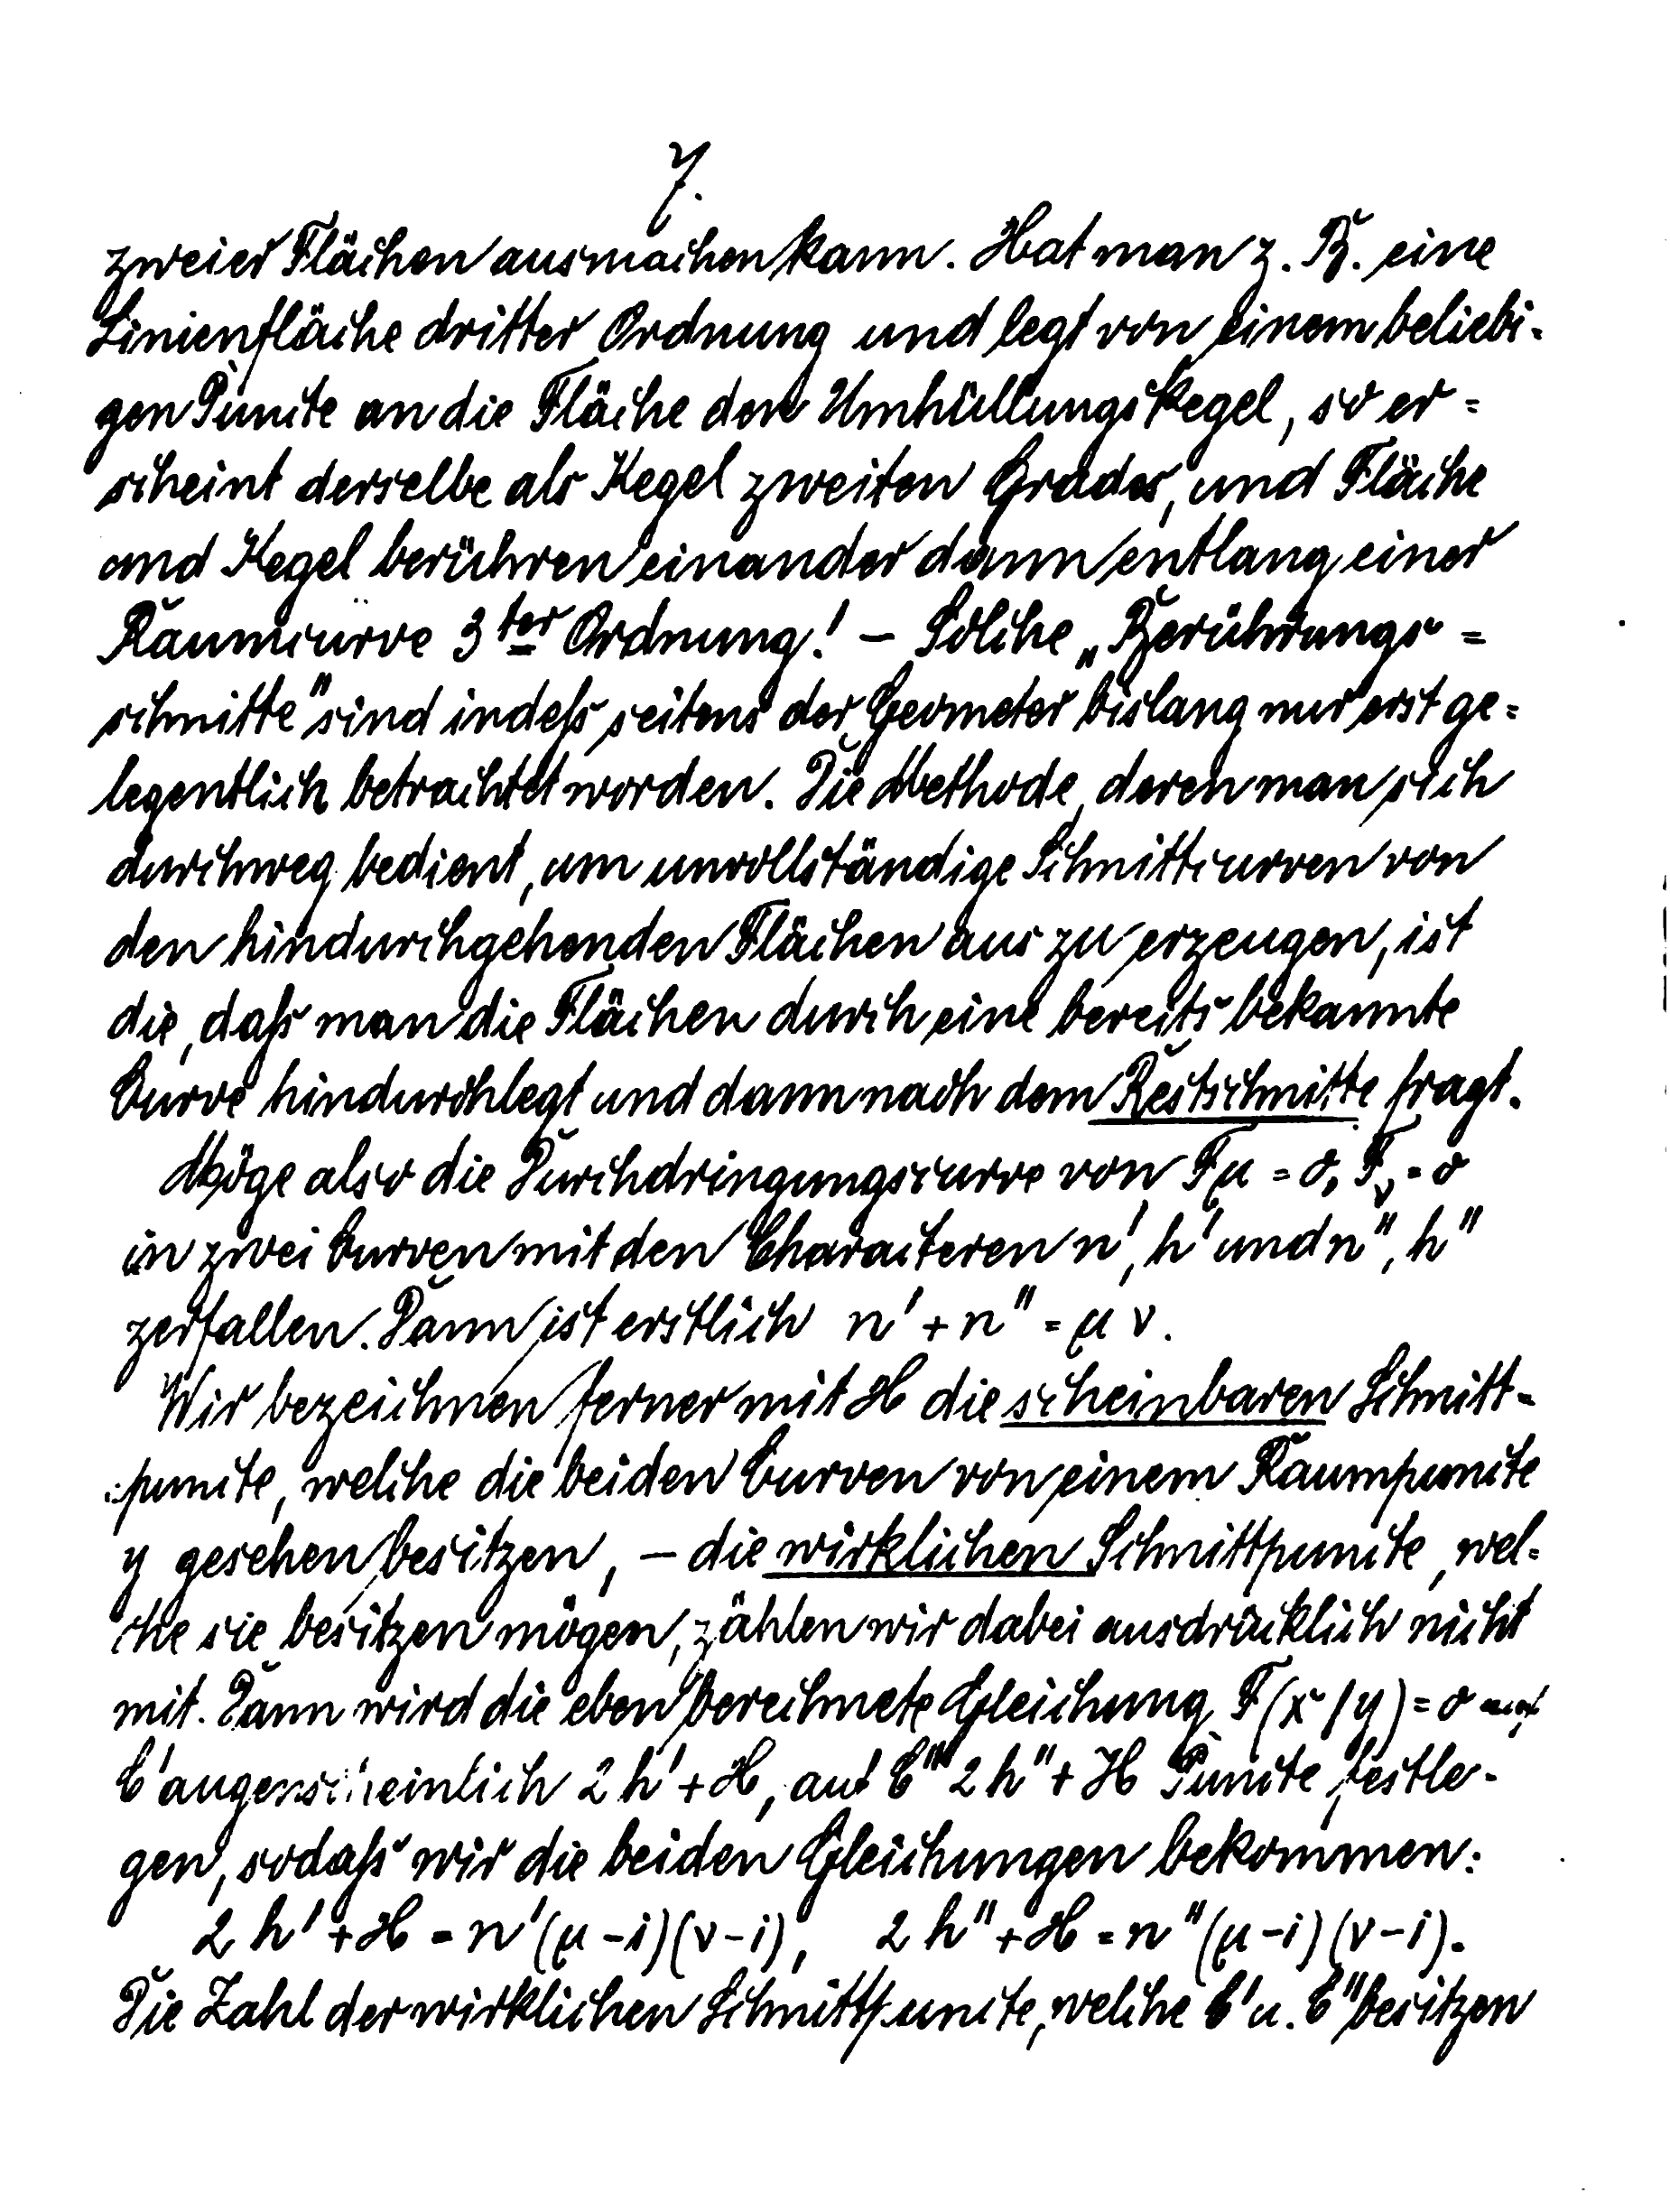 7.
zweier Flächen ausmachen kann. Hat man z. B. eine
Linienfläche dritter Ordnung und legt von einem beliebi-
gen Puncte an die Fläche den Umhüllungskegel, so er-
scheint derselbe als Kegel zweiten Grades, und Fläche
und Kegel berühren einander dann entlang einer
Raumcurve 3ter Ordnung! — Solche „Berührungs-
schnitte" sind indeß seitens der Geometer bislang nur erst ge-
legentlich betrachtet worden. Die Methode, deren man sich
durchweg bedient, um unvollständige Schnittcurven von
den hindurchgehenden Flächen aus zu erzeugen, ist
die, daß man die Flächen durch eine bereits bekannte
Curve hindurchlegt und dann nach dem Restschnitte fragt.
Möge also die Durchdringungscurve von Fμ = 0, Fν = 0
in zwei Curven mit den Characteren n', h' und n", h"
zerfallen. Dann ist erstlich n' + n" = μ ν.
Wir bezeichnen ferner mit H die scheinbaren Schnitt-
puncte, welche die beiden Curven von einem Raumpuncte
y gesehen besitzen, — die wirklichen Schnittpuncte, wel-
che sie besitzen mögen, zählen wir dabei ausdrücklich nicht
mit. Dann wird die eben berechnete Gleichung F(x/y) = 0 auf
C' augenscheinlich 2h' + H, auf C" 2h" + H Puncte festle-
gen, sodaß wir die beiden Gleichungen bekommen:
2h' + H = n'(μ-1)(ν-1), 2h" + H = n"(μ-1)(ν-1).
Die Zahl der wirklichen Schnittpuncte, welche C' u. C" besitzen